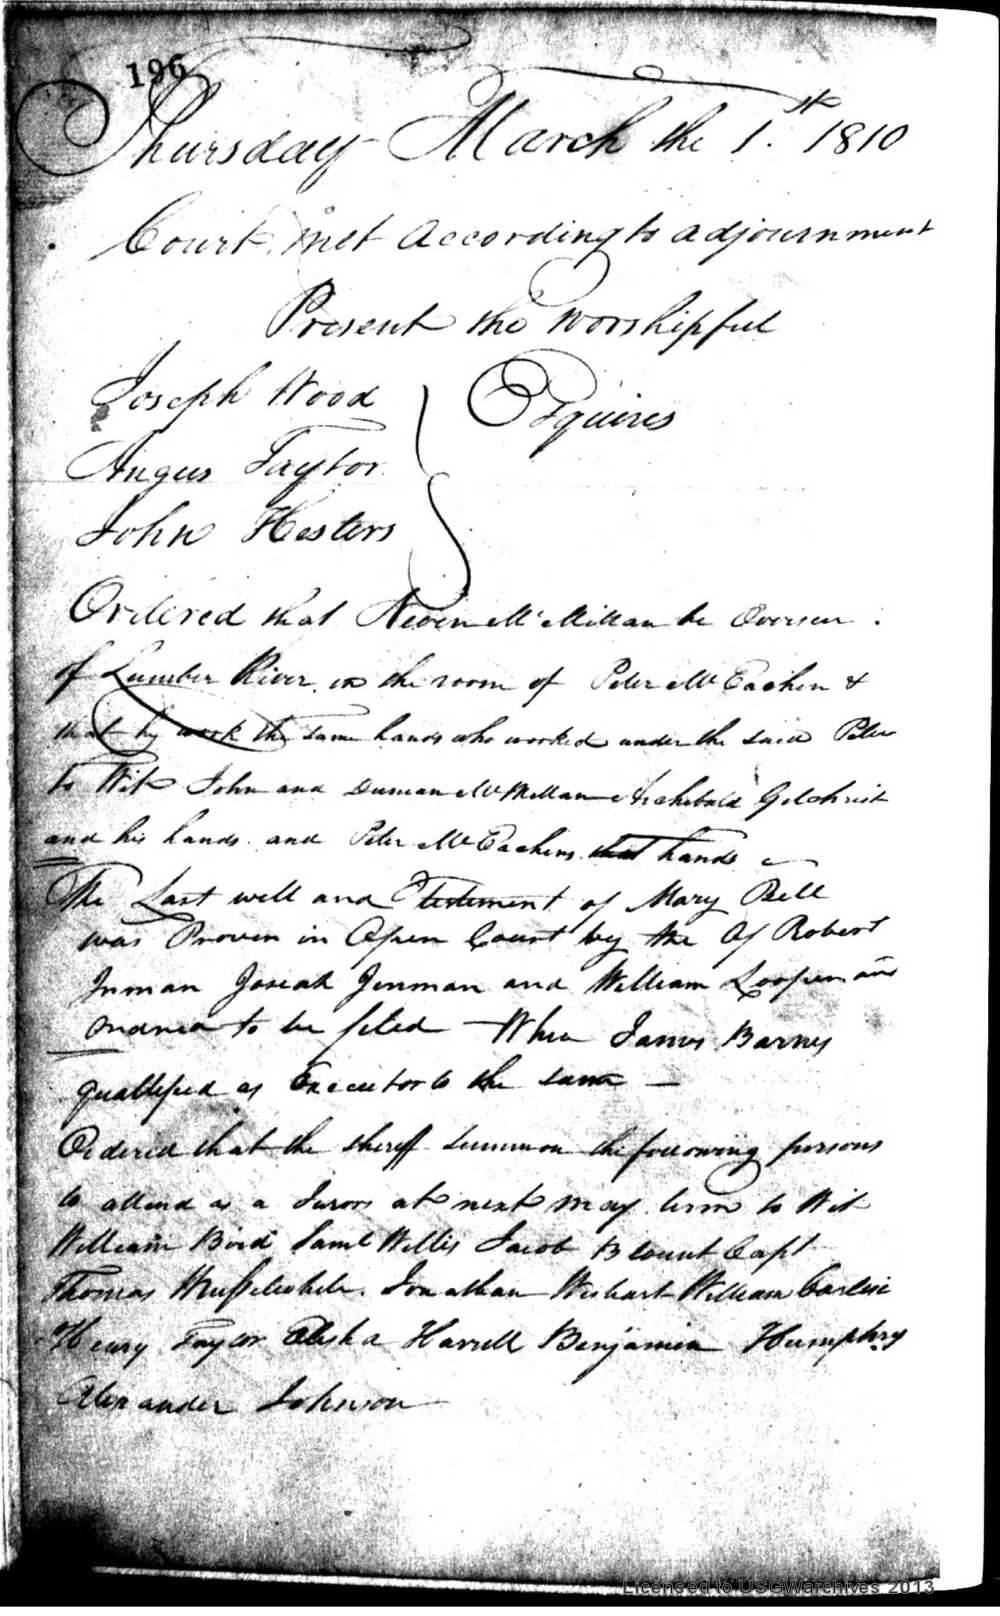 196
Thursday March the 1st. 1810
Court met according to adjournment
Present the worshipful
Joseph Wood
Esquires
Angus Taylor
John Hesters
Ordered that Neven McMillan be Overseer
of Lumber River in the room of Peter McEachen &
that he work the same hands who worked under the said Peter
to Wit John and Duncan McMillan Archebald Gilchrist
and his hands and Peter McEachens hands
The Last will and Testement of Mary Bell
was Proven in Open Court by the Of Robert
Inman Josiah Jinman and William and
Ordered to be filed When James Barnes
quallifyed as Executor to the same
Ordered that the sheriff summon the following persons
to attend as a Jurors at next may term to Wit
William Bird Saml Willis Jacob Blount Capt
Thomas Jonathan Wishart William Carlisi
Henry Taylor Elisha Harrell Benjamin Humphry
Alexander Johnson
Licensed to USGWarchives 2013